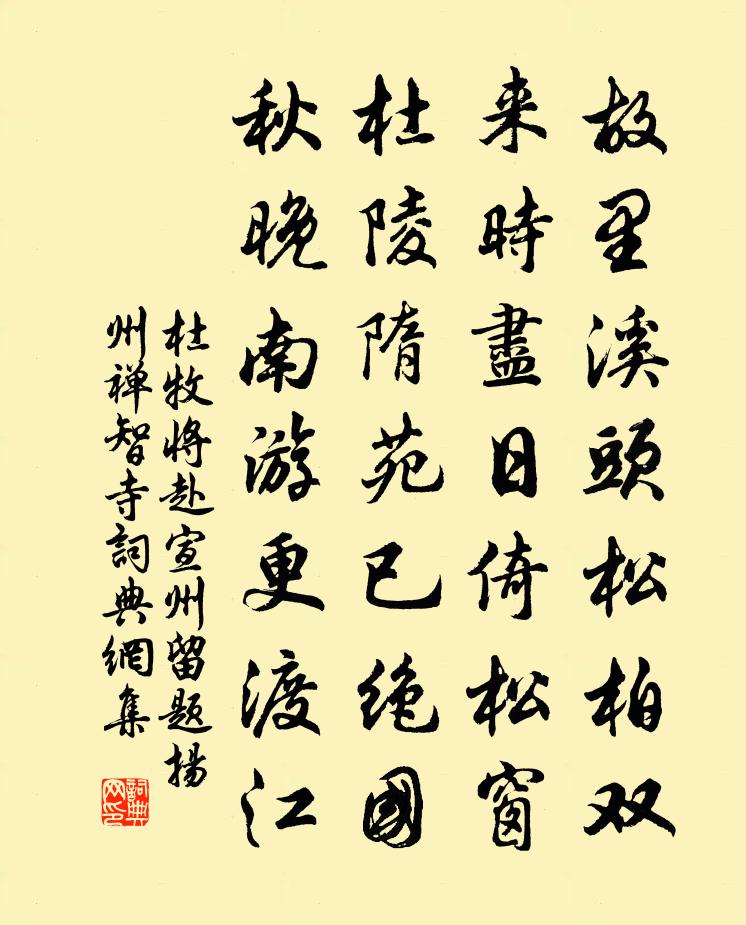 故里溪頭松柏双
来時盡日倚松窗
杜陵隋苑已绝國
秋晚南游更渡江
杜牧将赴宣州留题揚
州禅智寺詞典網集
詞典网印